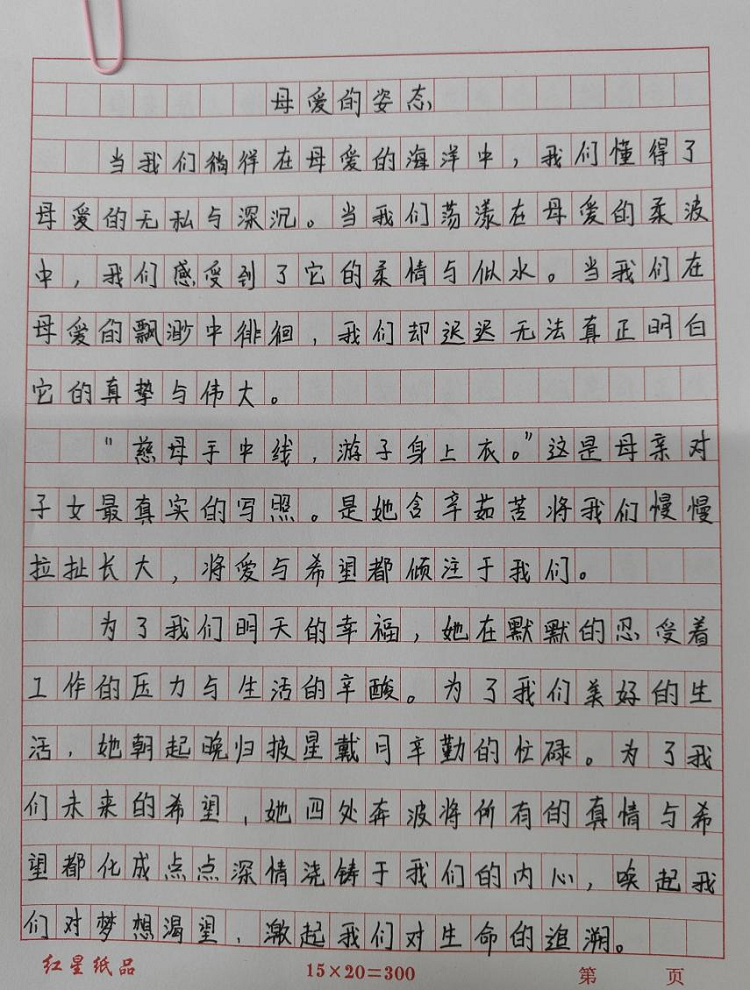 母爱的姿态
当我们徜徉在母爱的海洋中，我们懂得了
母爱的无私与深沉。当我们荡漾在母爱的柔波
中，我们感受到了它的柔情与似水。当我们在
母爱的飘渺中徘徊，我们却迟迟无法真正明白
它的真挚与伟大。
“慈母手中线，游子身上衣。”这是母亲对
子女最真实的写照。是她含辛茹苦将我们慢慢
拉扯长大，将爱与希望都倾注于我们。
为了我们明天的幸福，她在默默的忍受着
工作的压力与生活的辛酸。为了我们美好的生
活，她朝起晚归披星戴月辛勤的忙碌。为了我
们未来的希望，她四处奔波将所有的真情与希
望都化成点点深情浇铸于我们的内心，唤起我
们对梦想渴望，激起我们对生命的追溯。
红星纸品 15×20=300 第 页